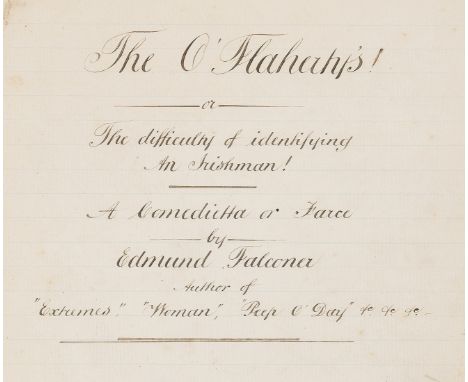 The O'Flaherty's!
or
The difficulty of identifying
An Irishman!
A Comedietta or Farce
by
Edmund Falconer
Author of
"Extremes". "Woman", "Peep O' Day" &c &c &c -